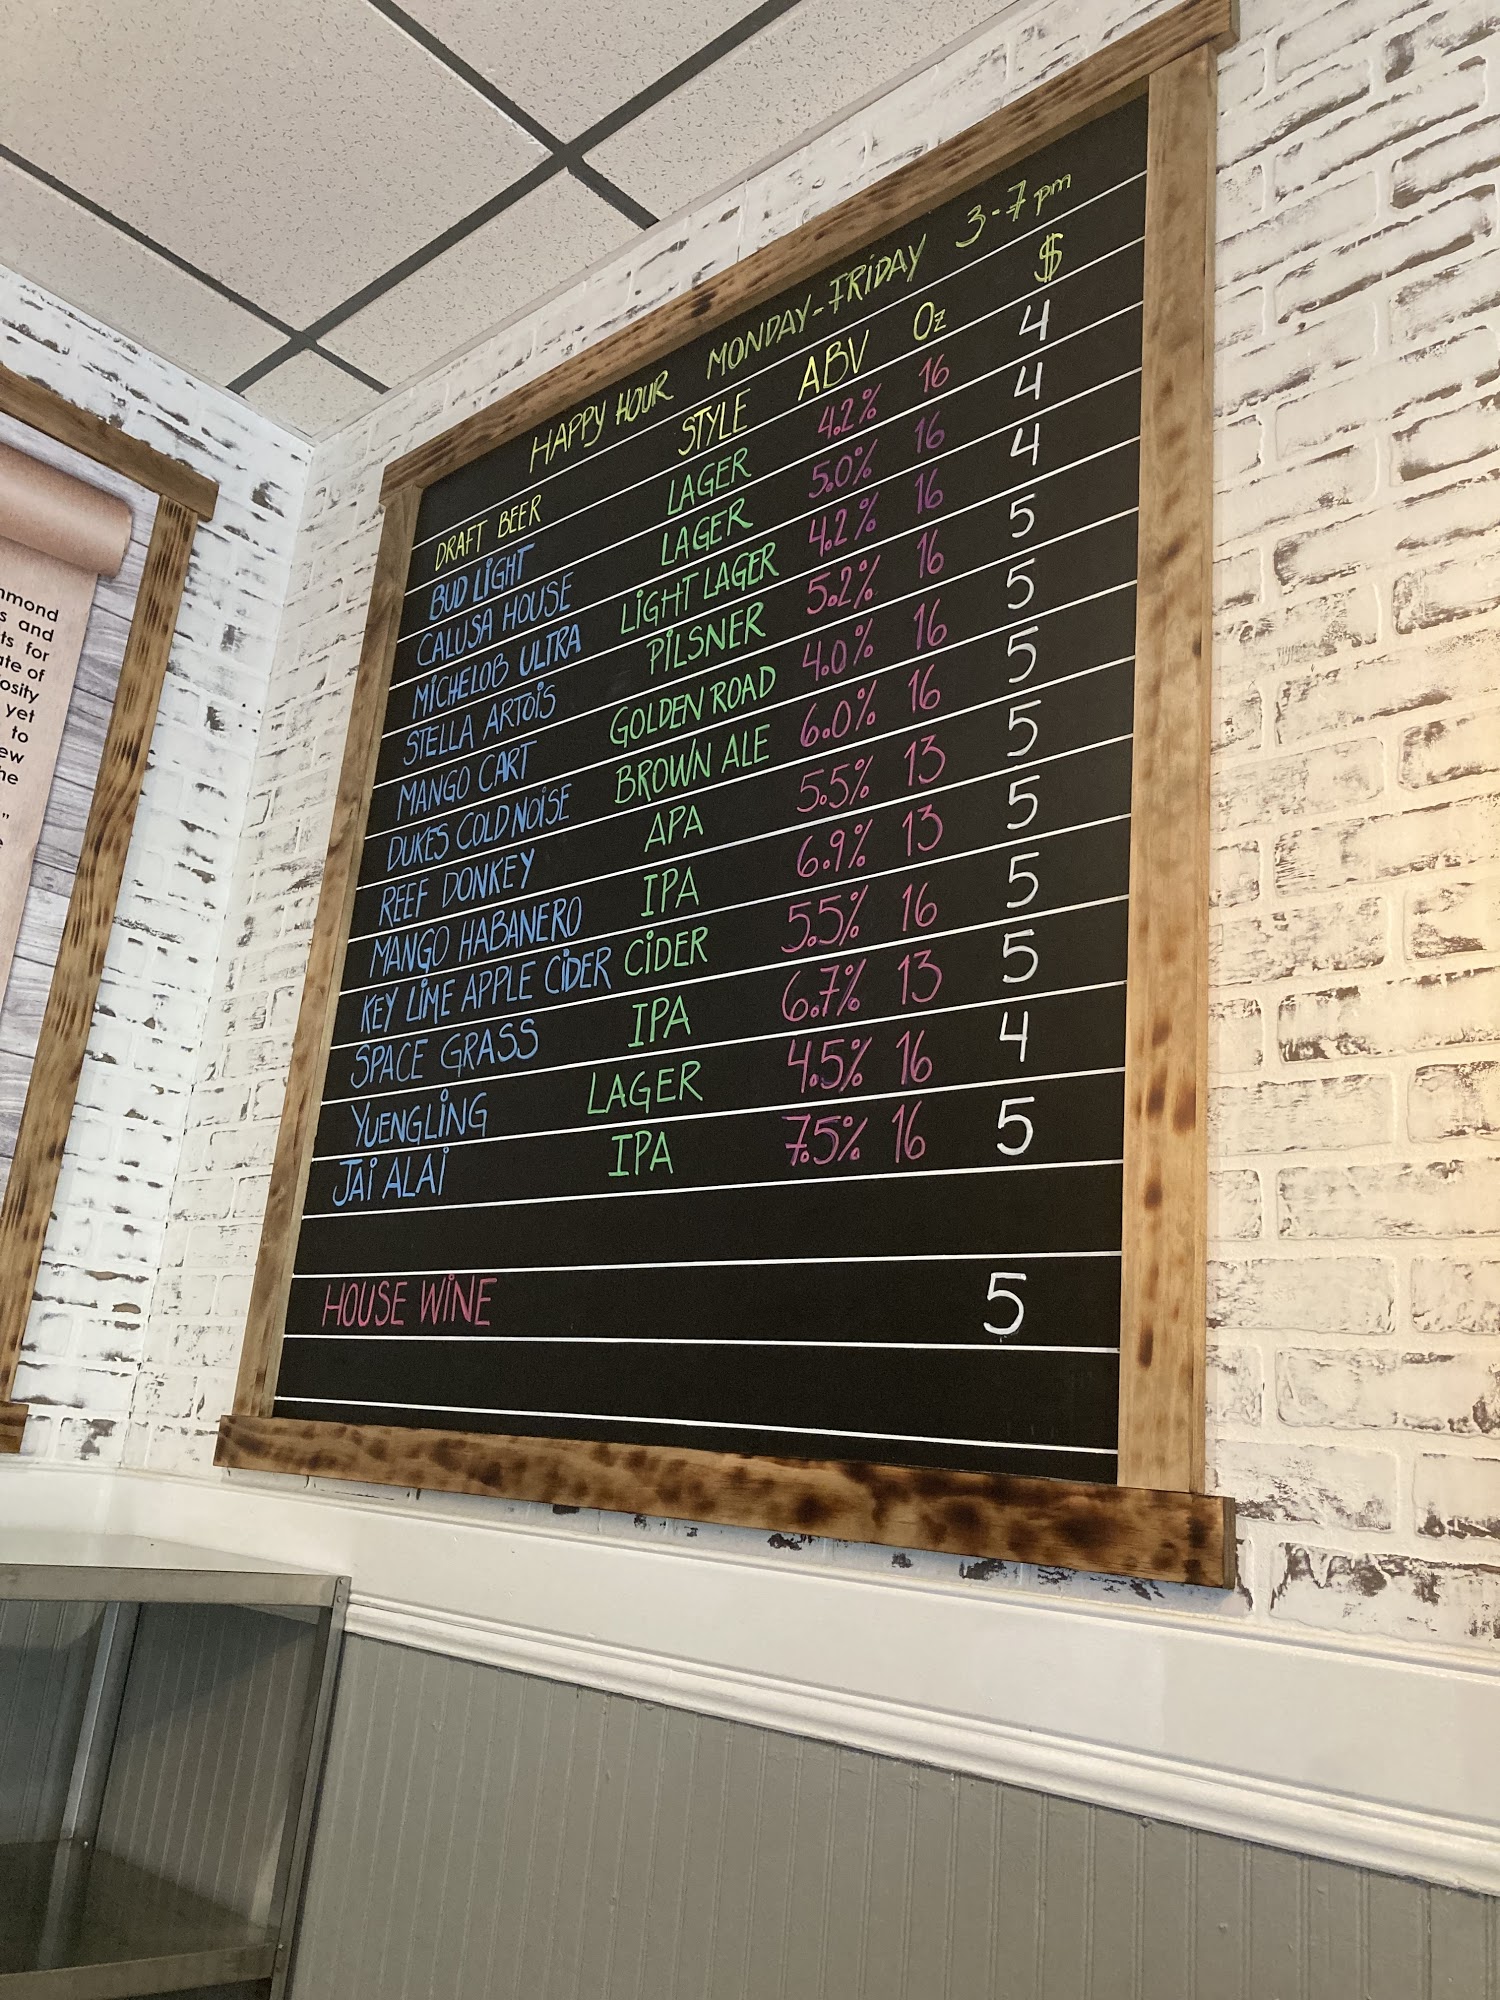 mmond
s and
ts for
ate of
iosity
yet
to
ew
he
"
e
HAPPY HOUR MONDAY-FRIDAY 3-7pm
DRAFT BEER STYLE ABV Oz $
BUD LIGHT LAGER 4.2% 16 4
CALUSA HOUSE LAGER 5.0% 16 4
MICHELOB ULTRA LIGHT LAGER 4.2% 16 4
STELLA ARTOIS PILSNER 5.2% 16 5
MANGO CART GOLDEN ROAD 4.0% 16 5
DUKES COLD NOISE BROWN ALE 6.0% 16 5
REEF DONKEY APA 5.5% 13 5
MANGO HABANERO IPA 6.9% 13 5
KEY LIME APPLE CIDER CIDER 5.5% 16 5
SPACE GRASS IPA 6.7% 13 5
YUENGLING LAGER 4.5% 16 4
JAI ALAI IPA 7.5% 16 5
HOUSE WINE 5